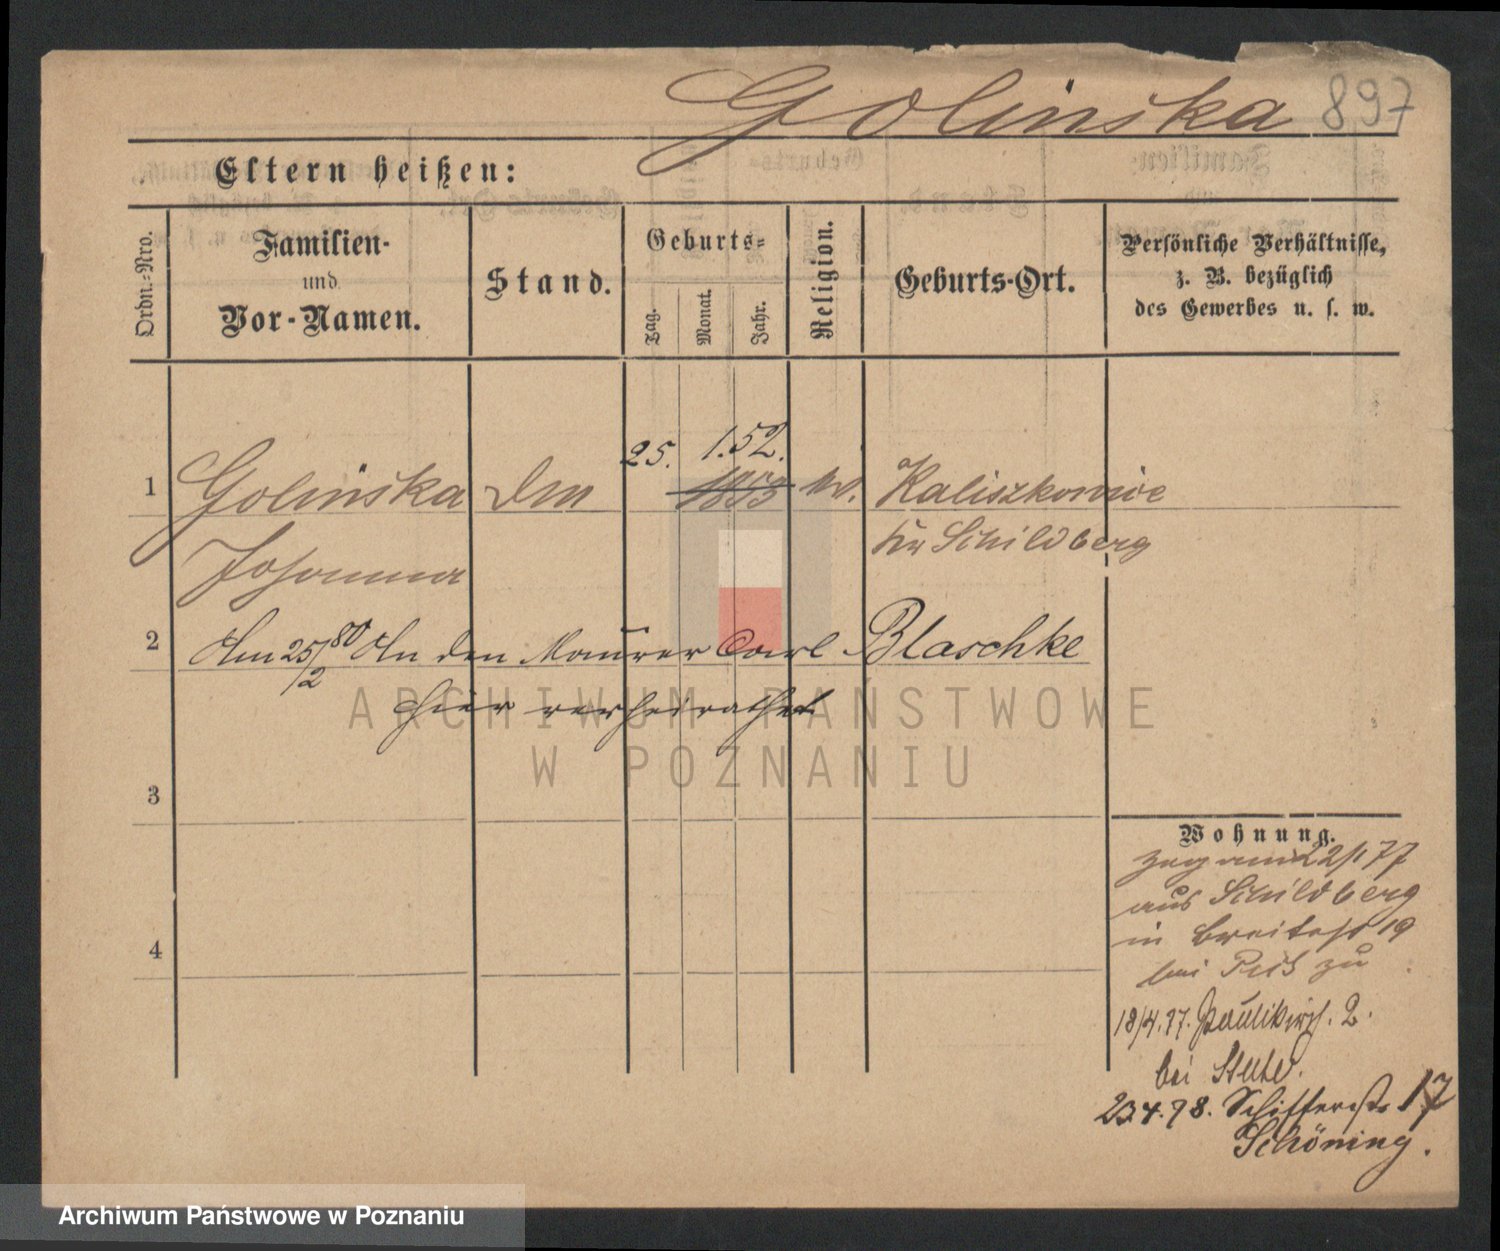 Golinska 897
Eltern heißen:
Ordn.-Nro.
Familien-
und
Vor-Namen.
Stand.
Geburts-
Tag.
Monat.
Jahr.
Religion.
Geburts-Ort.
Persönliche Verhältnisse,
z. B. bezüglich
des Gewerbes u. s. w.
25. 1.52.
1 Golinska 1853 Kaliszkowice
Kr Schildberg
Johanna
2 Am 25/2 80 An den Maurer Carl Blaschke
hier verheirathet
ARCHIWUM PAŃSTWOWE
W POZNANIU
3
4
Wohnung.
zug am 22/1 77
aus Schildberg
in Breitestr 19
bei zu
18/4.77. Paulikirch. 2.
bei
23.4.78. Schifferstr. 17
Schöning.
Archiwum Państwowe w Poznaniu